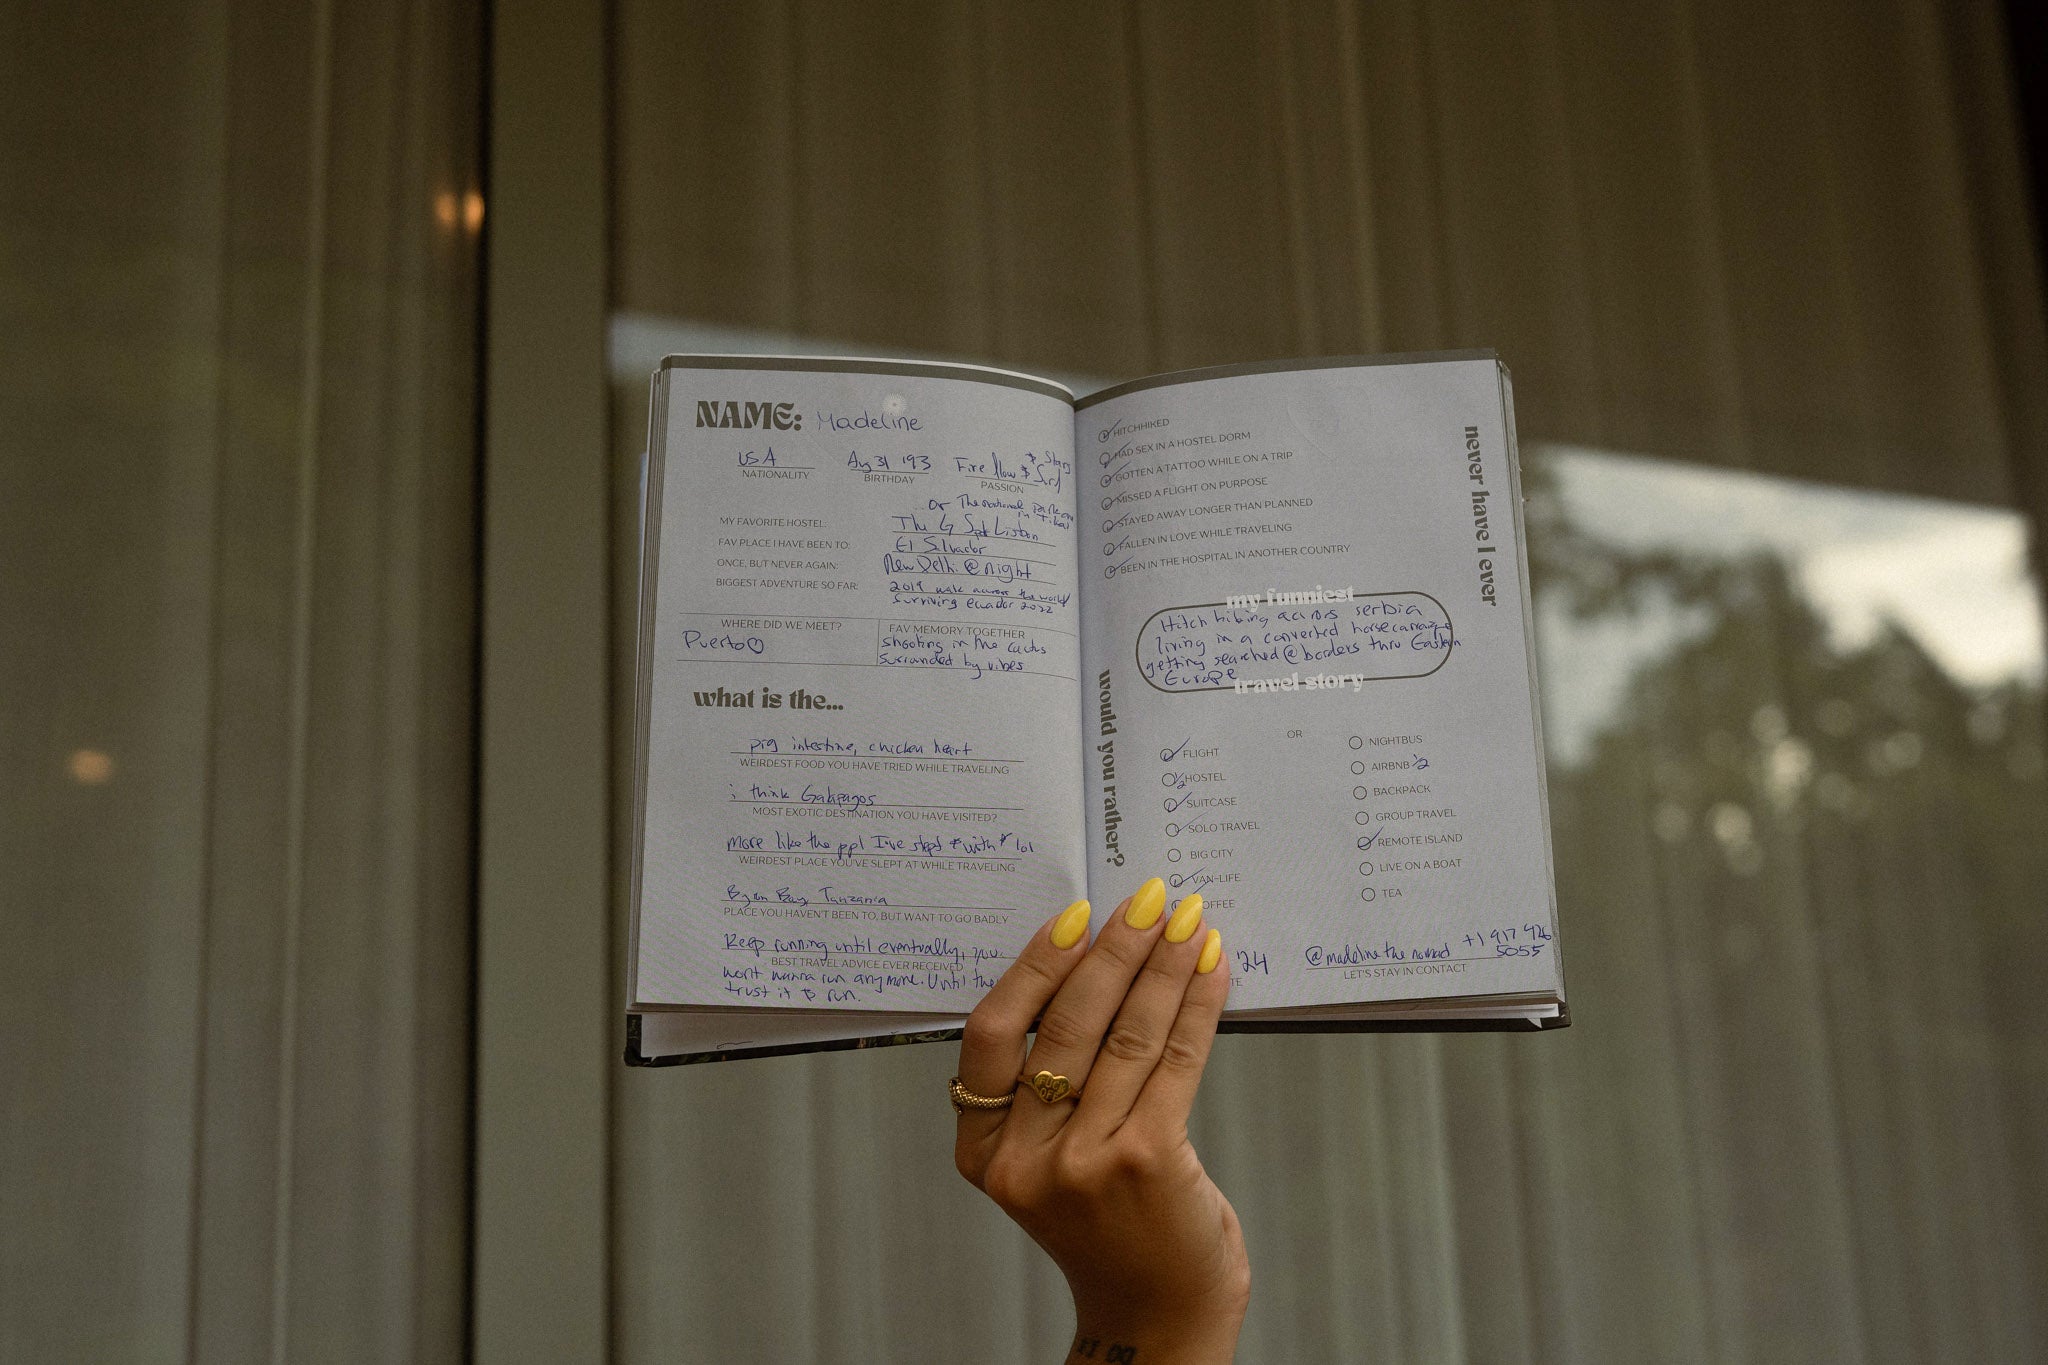 NAME: Madeline
USA Aug 31 '93 Fire flow & Surf & Stars
NATIONALITY BIRTHDAY PASSION
or The national park one in
MY FAVORITE HOSTEL: The G Spot Lisbon
FAV PLACE I HAVE BEEN TO: El Salvador
ONCE, BUT NEVER AGAIN: New Delhi @ night
BIGGEST ADVENTURE SO FAR: 2019 walk across the world
Surviving ecuador 2022
WHERE DID WE MEET? FAV MEMORY TOGETHER
Puerto♡ shooting in the cactus
surrounded by vibes
what is the...
pig intestine, chicken heart
WEIRDEST FOOD YOU HAVE TRIED WHILE TRAVELING
i think Galapagos
MOST EXOTIC DESTINATION YOU HAVE VISITED?
more like the ppl I've slept *with* lol
WEIRDEST PLACE YOU'VE SLEPT AT WHILE TRAVELING
Byron Bay, Tanzania
PLACE YOU HAVEN'T BEEN TO, BUT WANT TO GO BADLY
Keep running until eventually, you
BEST TRAVEL ADVICE EVER RECEIVED
wont wanna run anymore. Until then
trust it & run.
never have I ever
HITCHHIKED
HAD SEX IN A HOSTEL DORM
GOTTEN A TATTOO WHILE ON A TRIP
MISSED A FLIGHT ON PURPOSE
STAYED AWAY LONGER THAN PLANNED
FALLEN IN LOVE WHILE TRAVELING
BEEN IN THE HOSPITAL IN ANOTHER COUNTRY
my funniest
Hitch hiking across serbia
living in a converted horsecarraige
getting searched @ borders thru Eastern
Europe
travel story
would you rather?
OR
FLIGHT NIGHTBUS
1/2 HOSTEL AIRBNB 1/2
SUITCASE BACKPACK
SOLO TRAVEL GROUP TRAVEL
BIG CITY REMOTE ISLAND
VAN-LIFE LIVE ON A BOAT
OFFEE TEA
'24 @madeline the nomad +1 917 426
5055
TE LET'S STAY IN CONTACT
FUCK
OFF